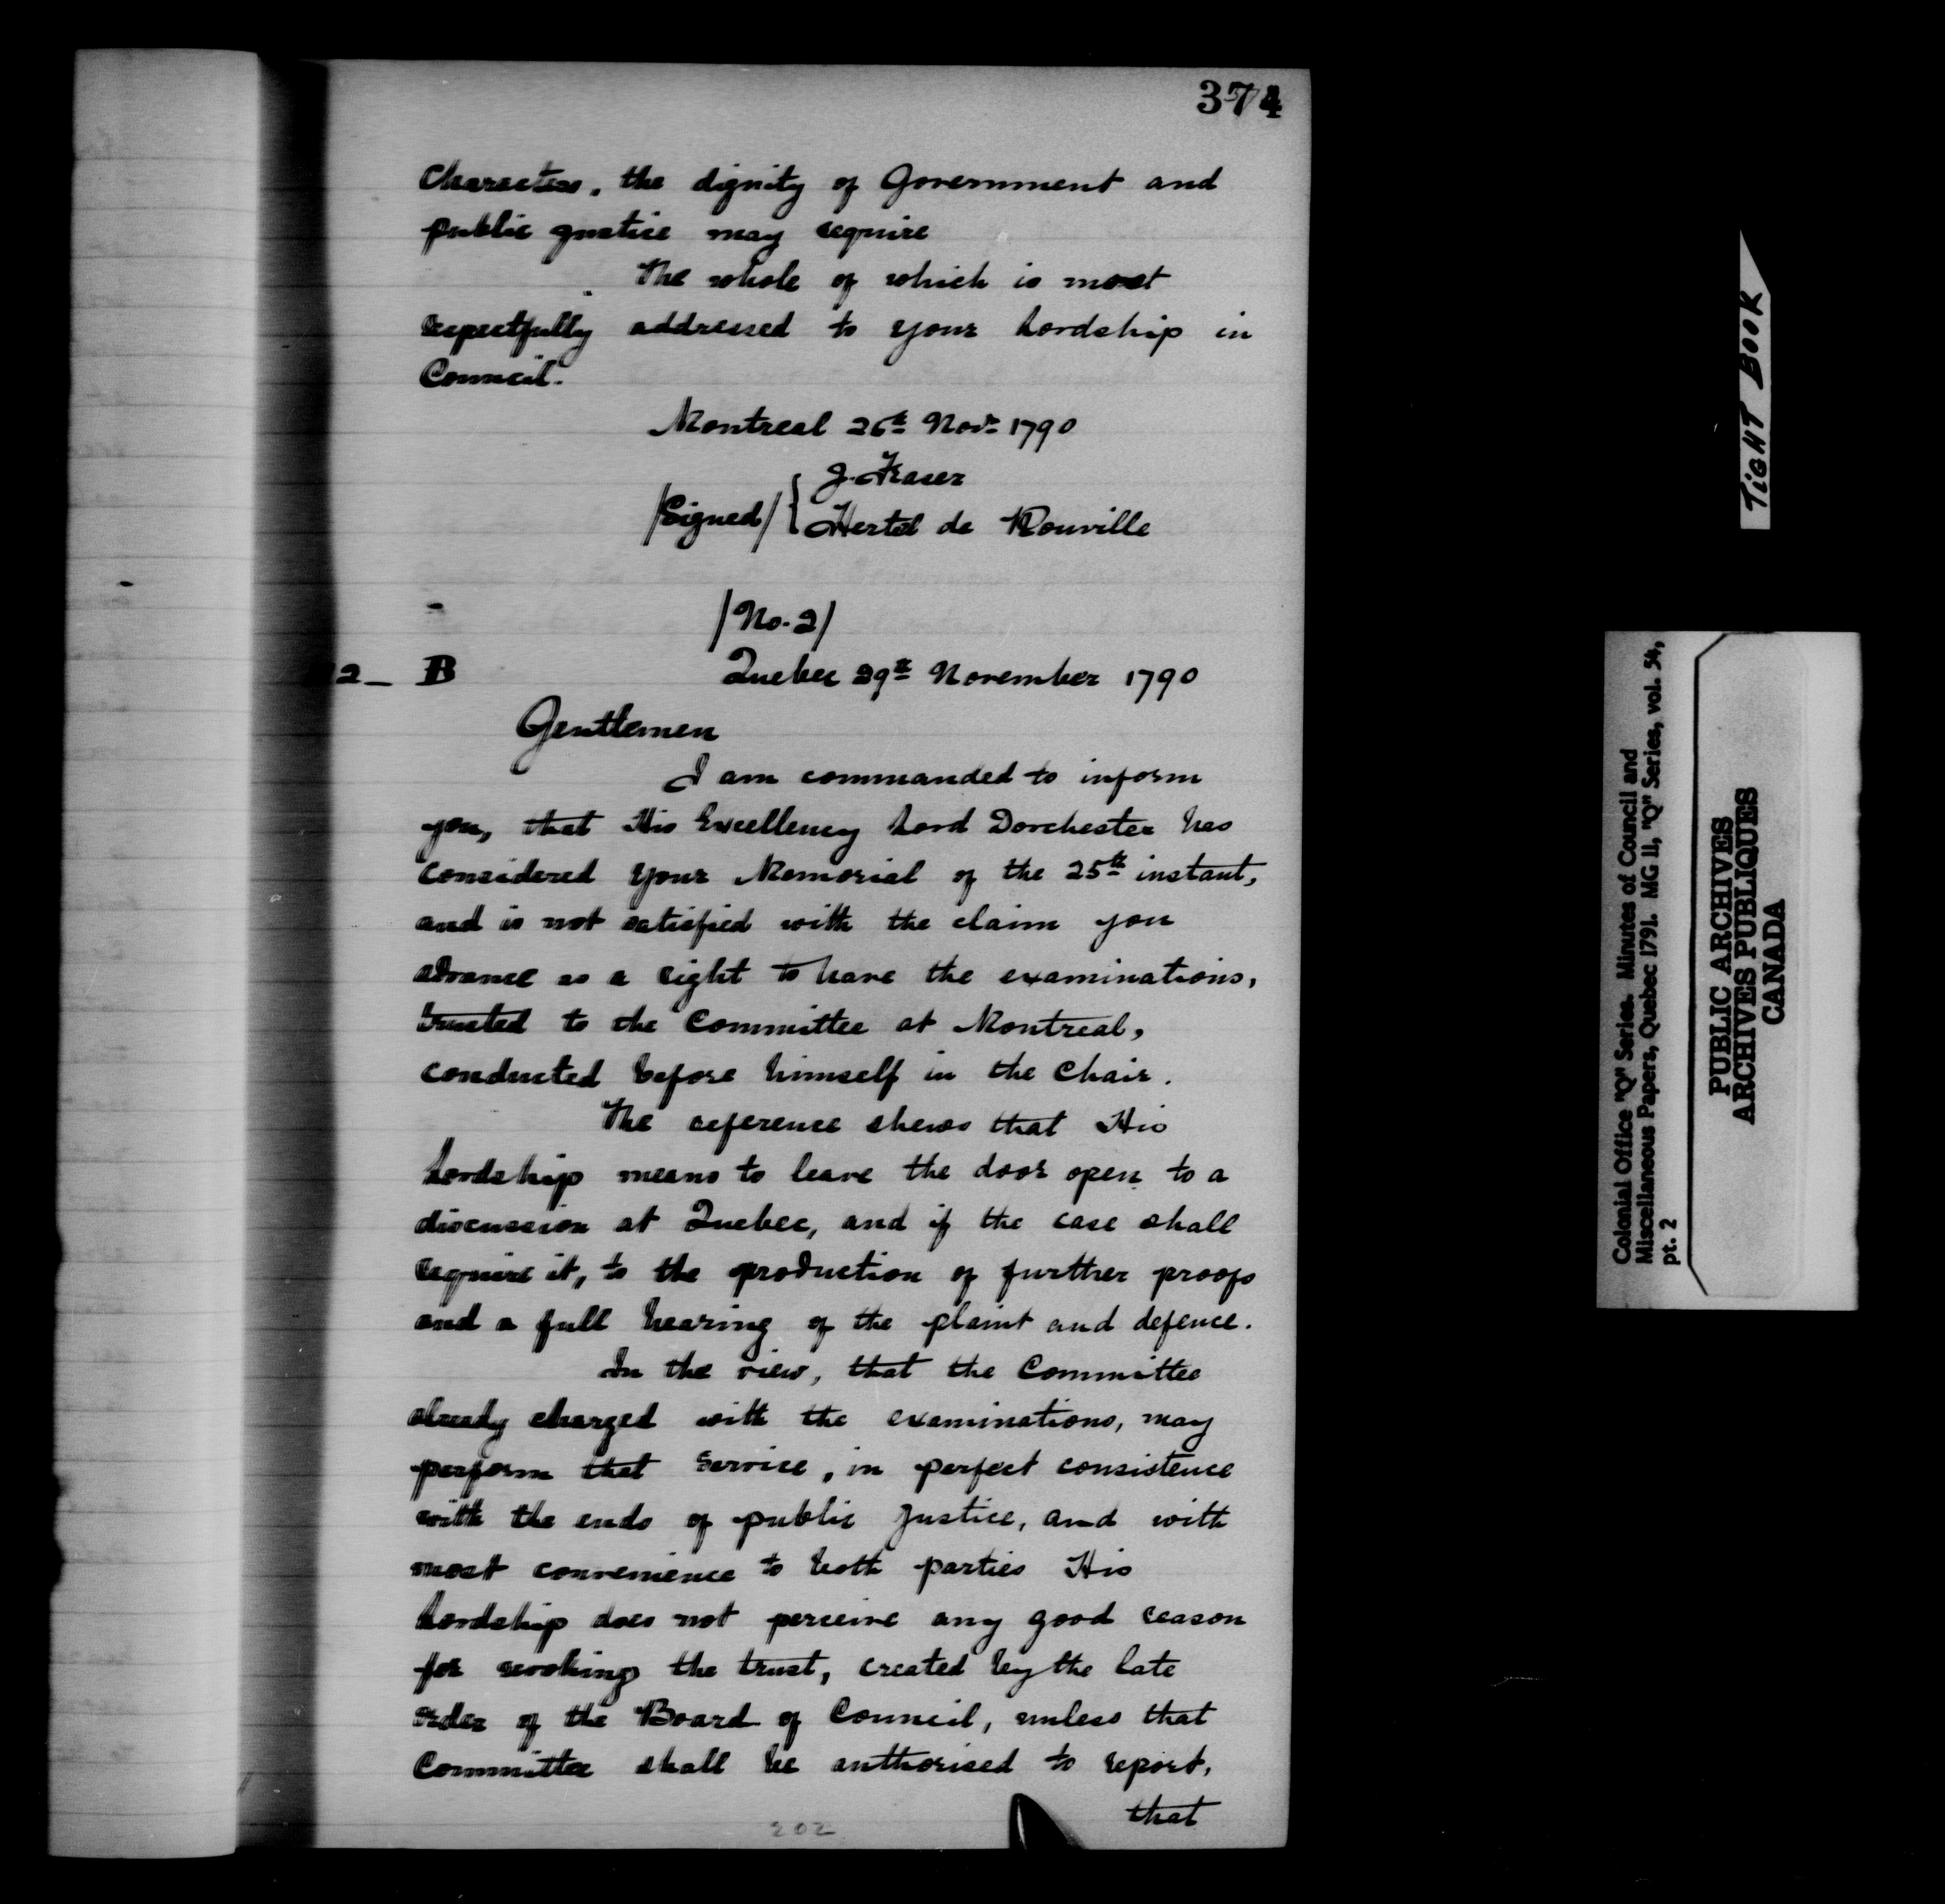 374
Characters, the dignity of Government and
public justice may require
The whole of which is most
respectfully addressed to your Lordship in
Council.
Montreal 26th Novr 1790
/Signed/ { J. Fraser
Hertel de Rouville
/No. 2/
2_ B Quebec 29th November 1790
Gentlemen
I am commanded to inform
you, that His Excellency Lord Dorchester has
considered your Memorial of the 25th instant,
and is not satisfied with the claim you
advance as a right to have the examinations,
trusted to the Committee at Montreal,
conducted before himself in the Chair.
The reference shews that His
Lordship means to leave the door open to a
discussion at Quebec, and if the case shall
require it, to the production of further proofs
and a full hearing of the plaint and defence.
In the view, that the Committee
already charged with the examinations, may
perform that Service, in perfect consistence
with the ends of public Justice, and with
most convenience to both parties His
Lordship does not perceive any good reason
for revoking the trust, created by the late
order of the Board of Council, unless that
Committee shall be authorised to report,
that
202
TIGHT BOOK
Colonial Office "Q" Series. Minutes of Council and
Miscellaneous Papers, Quebec 1791. MG 11, "Q" Series, vol. 54,
pt. 2
PUBLIC ARCHIVES
ARCHIVES PUBLIQUES
CANADA